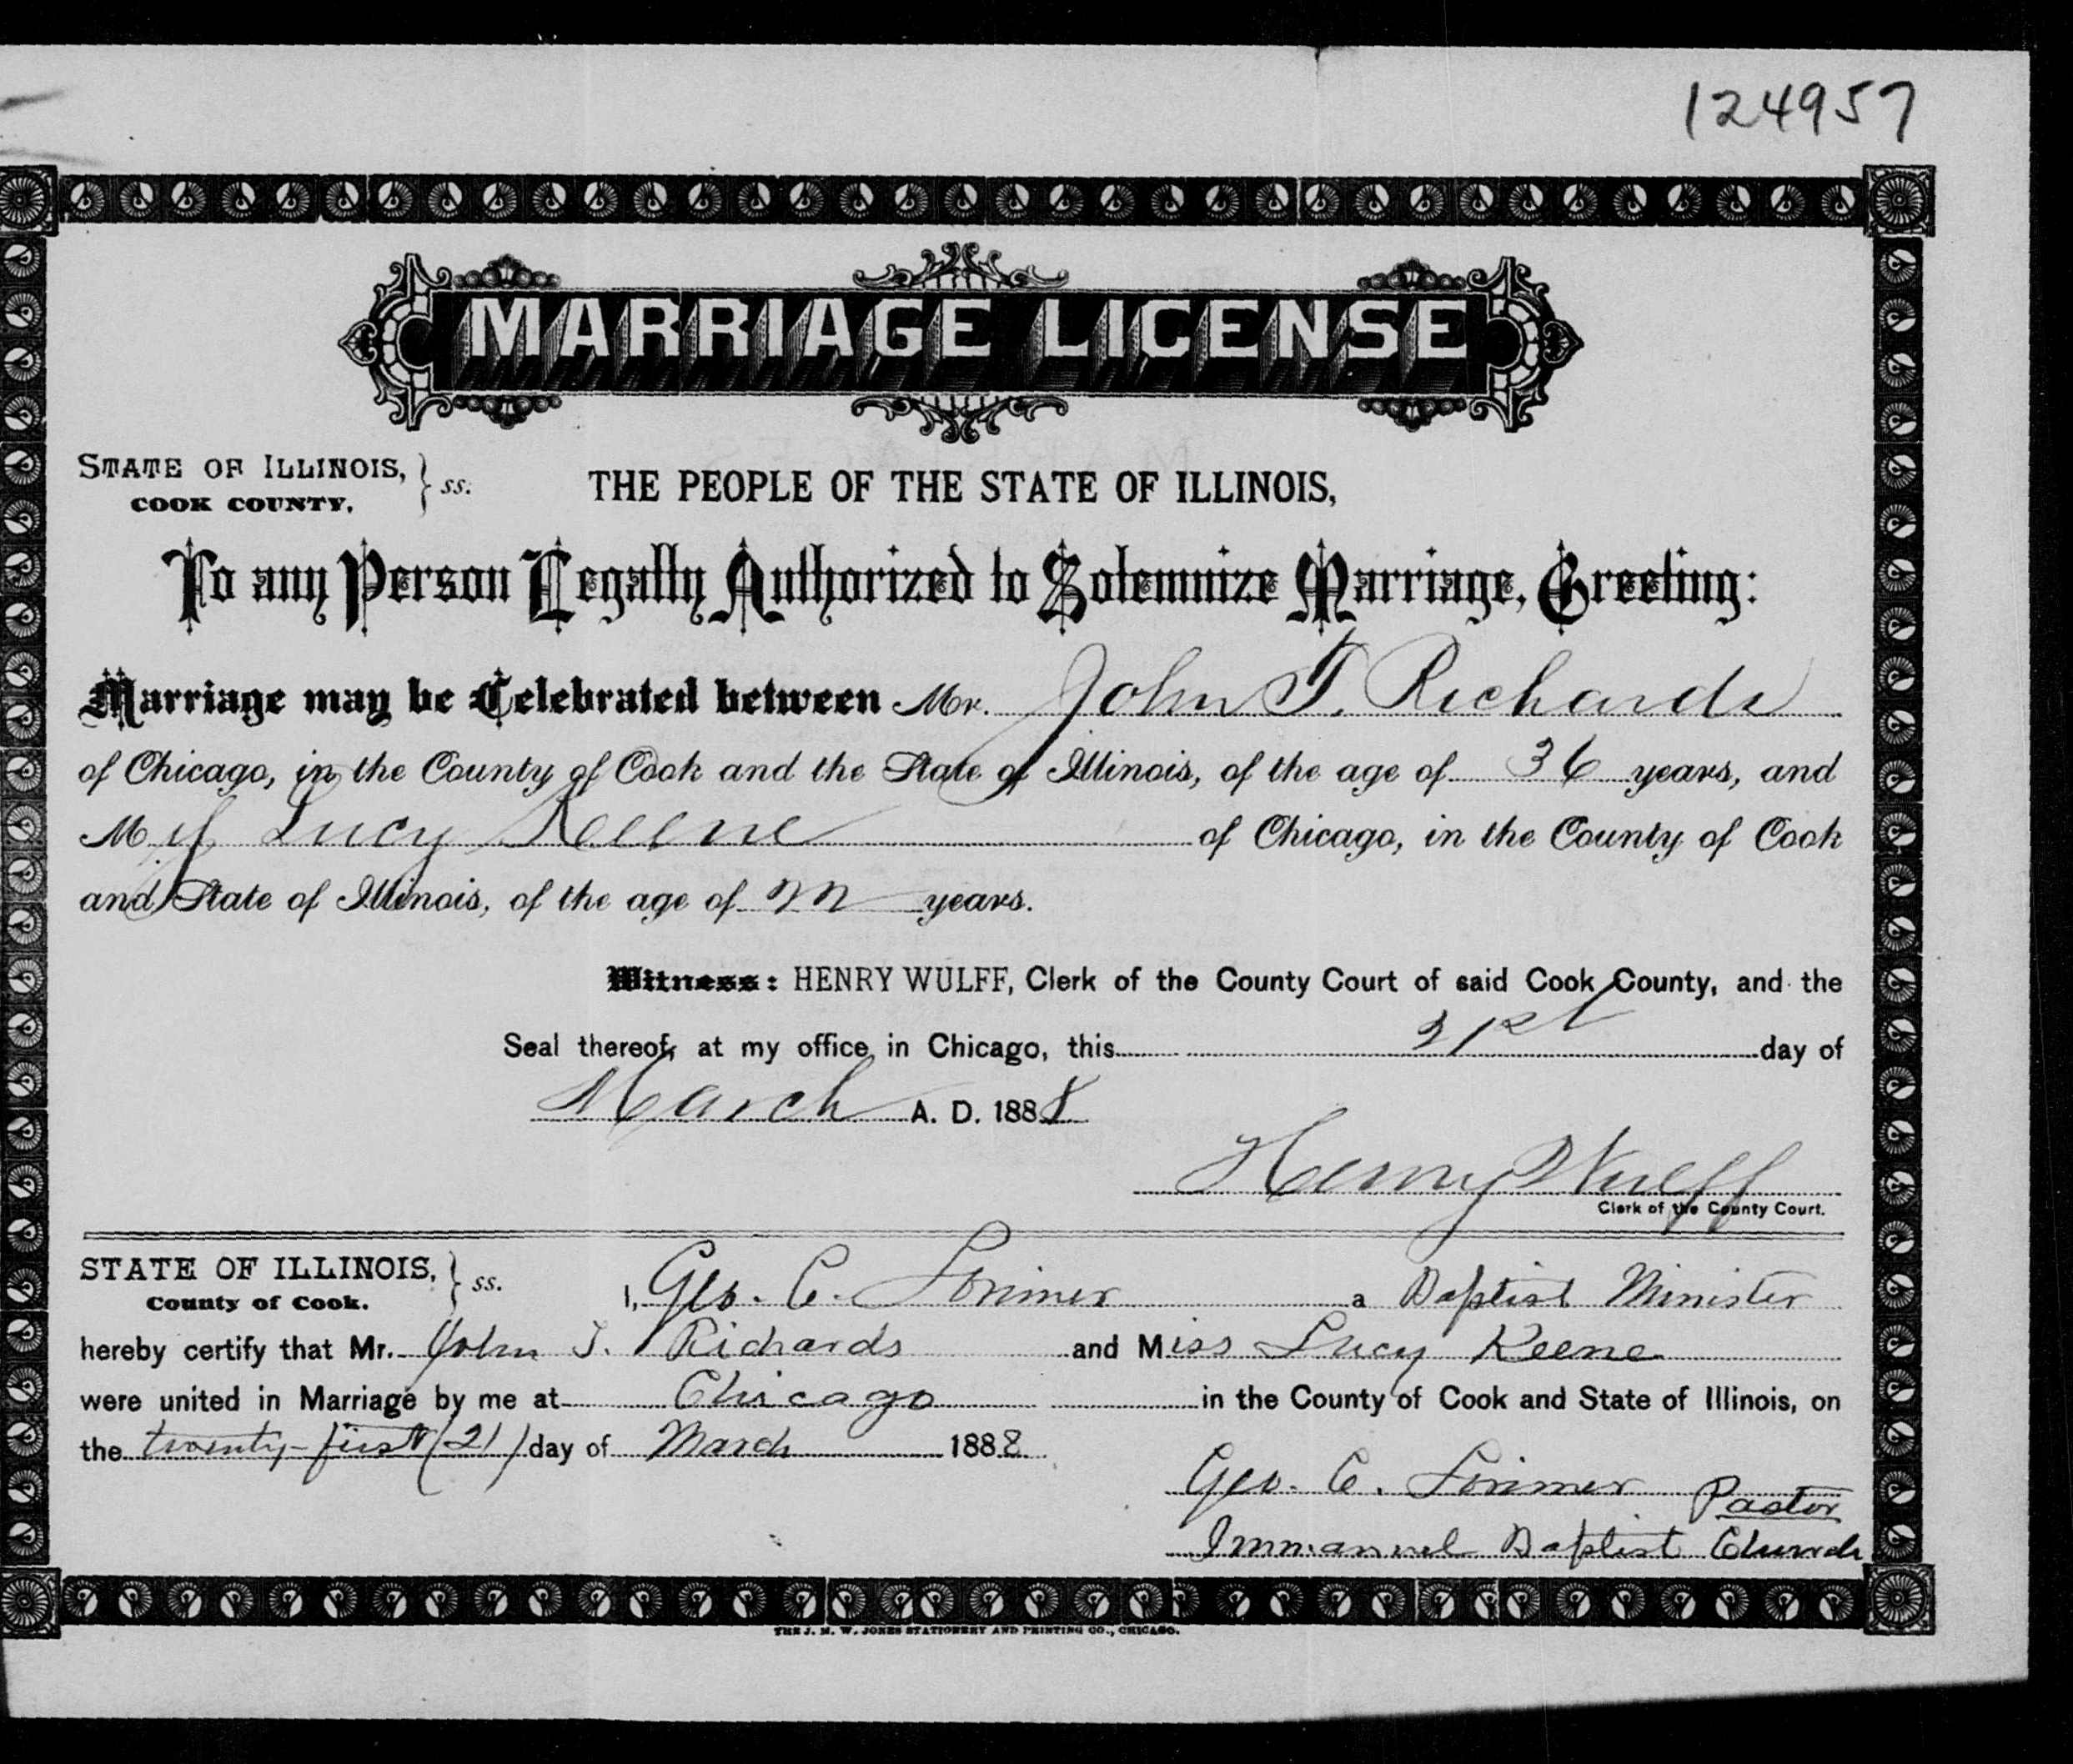 124957
MARRIAGE LICENSE
STATE OF ILLINOIS, } ss. THE PEOPLE OF THE STATE OF ILLINOIS,
COOK COUNTY.
To any Person Legally Authorized to Solemnize Marriage, Greeting:
Marriage may be Celebrated between Mr. John T. Richards
of Chicago, in the County of Cook and the State of Illinois, of the age of 36 years, and
Miss Lucy Keene of Chicago, in the County of Cook
and State of Illinois, of the age of years.
Witness: HENRY WULFF, Clerk of the County Court of said Cook County, and the
Seal thereof, at my office in Chicago, this 21st day of
March A. D. 1888
Henry Wulff
Clerk of the County Court.
STATE OF ILLINOIS, } ss. I, Geo. C. Lorimer a Baptist Minister
County of Cook.
hereby certify that Mr. John T. Richards and Miss Lucy Keene
were united in Marriage by me at Chicago in the County of Cook and State of Illinois, on
the twenty-first (21) day of March 1888
Geo. C. Lorimer Pastor
Immanuel Baptist Church
THE J. M. W. JONES STATIONERY AND PRINTING CO., CHICAGO.